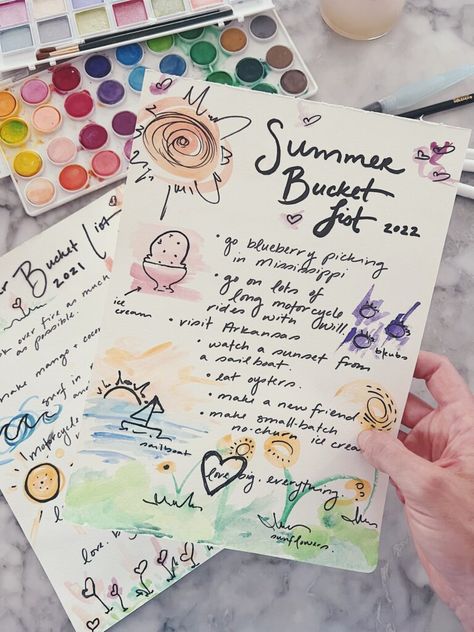 Summer
Bucket
List 2022
• go blueberry picking
in Mississippi
• go on lots of
long motorcycle
rides with Will.
• visit Arkansas
• watch a sunset from
a sailboat.
• eat oysters.
• make a new friend
• make small-batch
no-churn ice crea
love big. everything.
ice
cream
sailboat
sunflowers.
Bucket List
2021
over fire as much
as possible.
make mango + coco
surf in
motorcycle
love. big